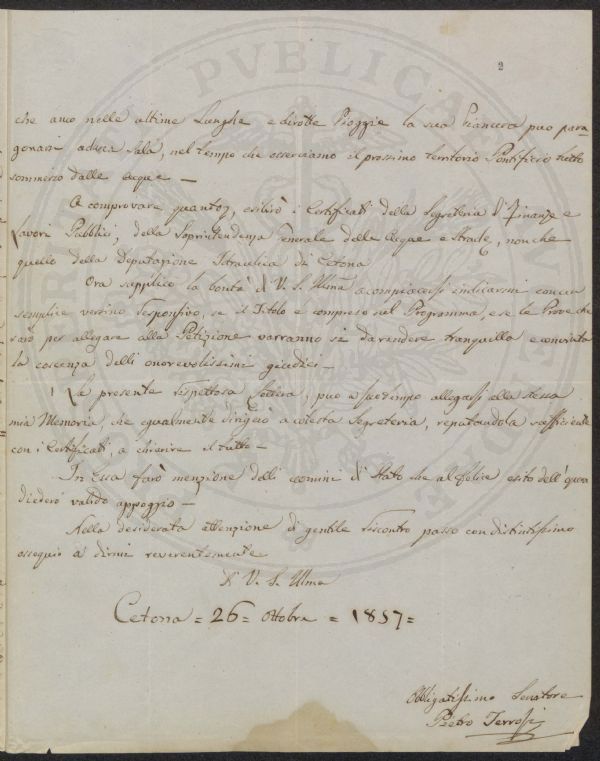 2
che anco nelle ultime Lunghe e dirotte Pioggie la sua Pianura può para-
gonarsi ad una Sala, nel tempo che osserviamo il prossimo territorio Pontificio tutto
sommerso dalle acque —
A comprovare quanto, esibirò i Certificati della Segreteria d'Finanze e
Lavori Pubblici, della Soprintendenza Generale delle Acque e Strade, nonche
quello della Deputazione Idraulica di Cetona
Ora supplico la bontà di V. S. Illma a compiacersi indicarmi con un
semplice versino responsivo, se il Titolo è compreso nel Programma, e se le Prove che
sarò per allegare alla Petizione varranno si da rendere tranquilla e convinta
la coscenza delli onorevolissimi giudici —
La presente rispettosa Lettera, può a suo tempo allegarsi alla stessa
mia Memoria, che egualmente dirigerò a cotesta Segreteria, reputandola sufficiente
con i Certificati, a chiarire il tutto —
In Essa farò menzione delli uomini di Stato che al felice esito dell'opera
diedero valido appoggio —
Nella desiderata attenzione di gentile riscontro passo con distintissimo
ossequio a dirmi reverentemente
Di V. S. Illma
Cetona = 26 = Ottobre = 1857 =
Obbligatissimo Servitore
Pietro Terrosi